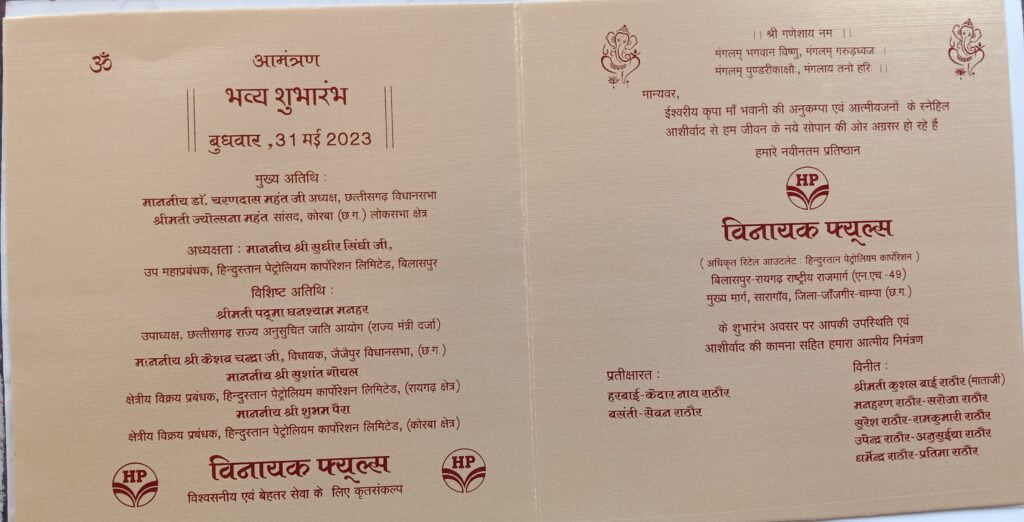 ॐ
आमंत्रण
भव्य शुभारंभ
बुधवार ,31 मई 2023
मुख्य अतिथि :
माननीय डॉ. चरणदास महंत जी अध्यक्ष, छत्तीसगढ़ विधानसभा
श्रीमती ज्योत्सना महंत सांसद, कोरबा (छ.ग.) लोकसभा क्षेत्र
अध्यक्षता : माननीय श्री सुधीर सिंघी जी,
उप महाप्रबंधक, हिन्दुस्तान पेट्रोलियम कार्पोरेशन लिमिटेड, बिलासपुर
विशिष्ट अतिथि :
श्रीमती पद्मा घनश्याम मनहर
उपाध्यक्ष, छत्तीसगढ़ राज्य अनुसुचित जाति आयोग (राज्य मंत्री दर्जा)
माननीय श्री केशव चन्द्रा जी, विधायक, जैजैपुर विधानसभा, (छ.ग.)
माननीय श्री सुशांत गोयल
क्षेत्रीय विक्रय प्रबंधक, हिन्दुस्तान पेट्रोलियम कार्पोरेशन लिमिटेड, (रायगढ़ क्षेत्र)
माननीय श्री शुभम पैरा
क्षेत्रीय विक्रय प्रबंधक, हिन्दुस्तान पेट्रोलियम कार्पोरेशन लिमिटेड, (कोरबा क्षेत्र)
HP विनायक फ्यूल्स HP
विश्वसनीय एवं बेहतर सेवा के लिए कृतसंकल्प
।। श्री गणेशाय नम ।।
मंगलम् भगवान विष्णु, मंगलम् गरुड़ध्वज ।
मंगलम् पुण्डरीकाक्षो, मंगलाय तनो हरि ।।
मान्यवर,
ईश्वरीय कृपा माँ भवानी की अनुकम्पा एवं आत्मीयजनों के स्नेहिल
आशीर्वाद से हम जीवन के नये सोपान की ओर अग्रसर हो रहे है
हमारे नवीनतम प्रतिष्ठान
HP
विनायक फ्यूल्स
( अधिकृत रिटेल आउटलेट : हिन्दुस्तान पेट्रोलियम कार्पोरेशन )
बिलासपुर-रायगढ़ राष्ट्रीय राजमार्ग (एन.एच -49)
मुख्य मार्ग, सारागाँव, जिला-जाँजगीर-चाम्पा (छ.ग.)
के शुभारंभ अवसर पर आपकी उपस्थिति एवं
आशीर्वाद की कामना सहित हमारा आत्मीय निमंत्रण
प्रतीक्षारत :
हरबाई-केदार नाथ राठौर
बसंती-सेवन राठौर
विनीत :
श्रीमती कुशल बाई राठौर (माताजी)
मनहरण राठौर-सरोजा राठौर
सुरेश राठौर-रामकुमारी राठौर
उपेन्द्र राठौर-अनुसुईया राठौर
धर्मेन्द्र राठौर-प्रतिमा राठौर